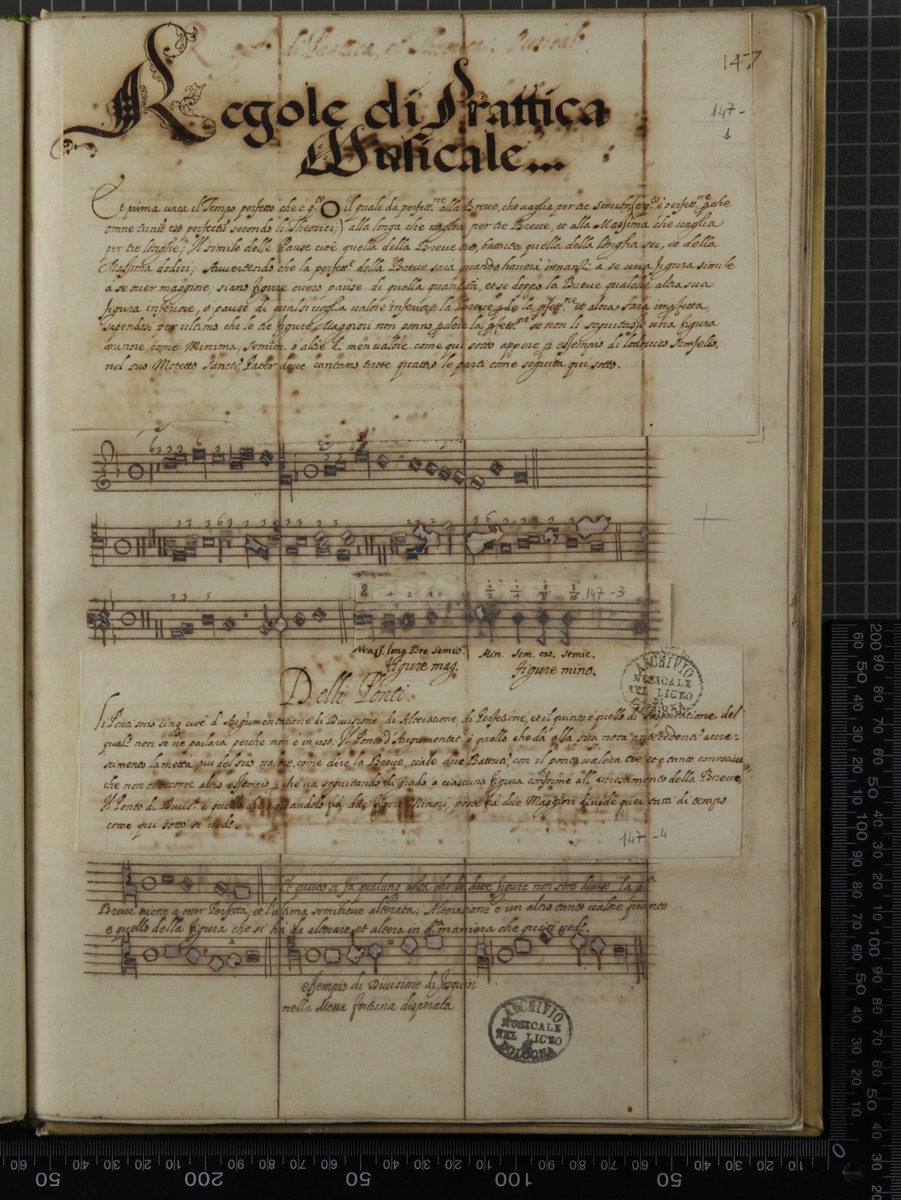 147
147-
1
Regole di Prattica
Musicale...
Et prima circa il Tempo perfetto che è q.to O il quale da perfett.ne alla Breve, che vaglia per tre Semibrevi è perfett.ne perche
omne trinũ est perfectũ secondo li Theorici; alla longa che vaglia per tre Breve, et alla Massima che vaglia
per tre longhe; Il simile delle Pause cioè quella della Breve tre battute quella della longha sei, et della
Massima dodici; Avvertendo che la perfett.e della Breve sarà quando haverà innanti a se una figura simile
a se over maggiore, siano figure overo pause di quella quantità, et se doppo la Breve qualche altra sua
figura inferiore, o pausa di qualsi voglia valore inferiore la Breve perde la pfett.ne et alora sarà impfetta,
sapendosi per ultimo che le tre figure Maggiori non ponno perdere la pfett.ne se non li sequitasse una figura
minore, come Minima, Semim. o altre di men valore come qui sotto appare p essempio di lodovico Senfelio.
nel suo Motetto Sancte Pater dove cantano tutte quattro le parti come seguita qui sotto.
8 4 2 1 1/2 1/4 1/8 1/16 147-3
Mass. long. Bre. Semib. Min. Sem. cro. Semic.
figure mag. figure mino.
ARCHIVIO
MUSICALE
NEL LICEO
DI
BOLOGNA
Delli Ponti.
Li Ponti sono cinq. cioè d'Argumentatione di Divisione, di Alteratione, di Perfettione, et il quinto è quello di Traspositione del
qual' non si ne parlarà perche non è in uso; Il Ponto d'Augumentat. è quello che dà alla sua nota antecedente accre-
scimento la metta più del suo valore come dire la Breve, vale due Battute, con il ponto valerà tre
che non occorre altro essempio, che và sequitando di grado a ciascuna figura conforme all' accrescimento della Breve,
Il Ponto di Divis.e è quello posto fra due Maggiori divide quei tutti di tempo
come qui sotto si vede.
147-4
Et questo si fa qualunq volta che le dette figure non sono divise la p.a
Breve viene a esser Perfetta, et l'ultima semibreve alterata; Alteratione è un altro tanto valore quanto
è quello della figura che si hà da alterare et altera in d.a maniera che questi vede.
essempio di Divisione di Josquin
nella Messa fortuna disperata
ARCHIVIO
MUSICALE
NEL LICEO
DI
BOLOGNA